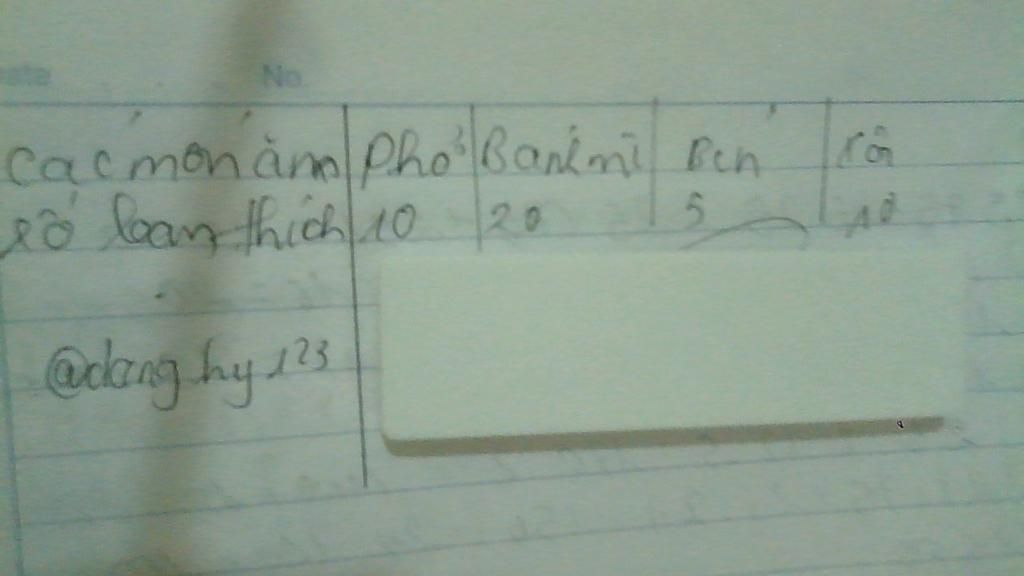 ate No
Các món ăm Phở Bánh mì Bún
số bạn thích 10 20 5 10
@dang hy 123